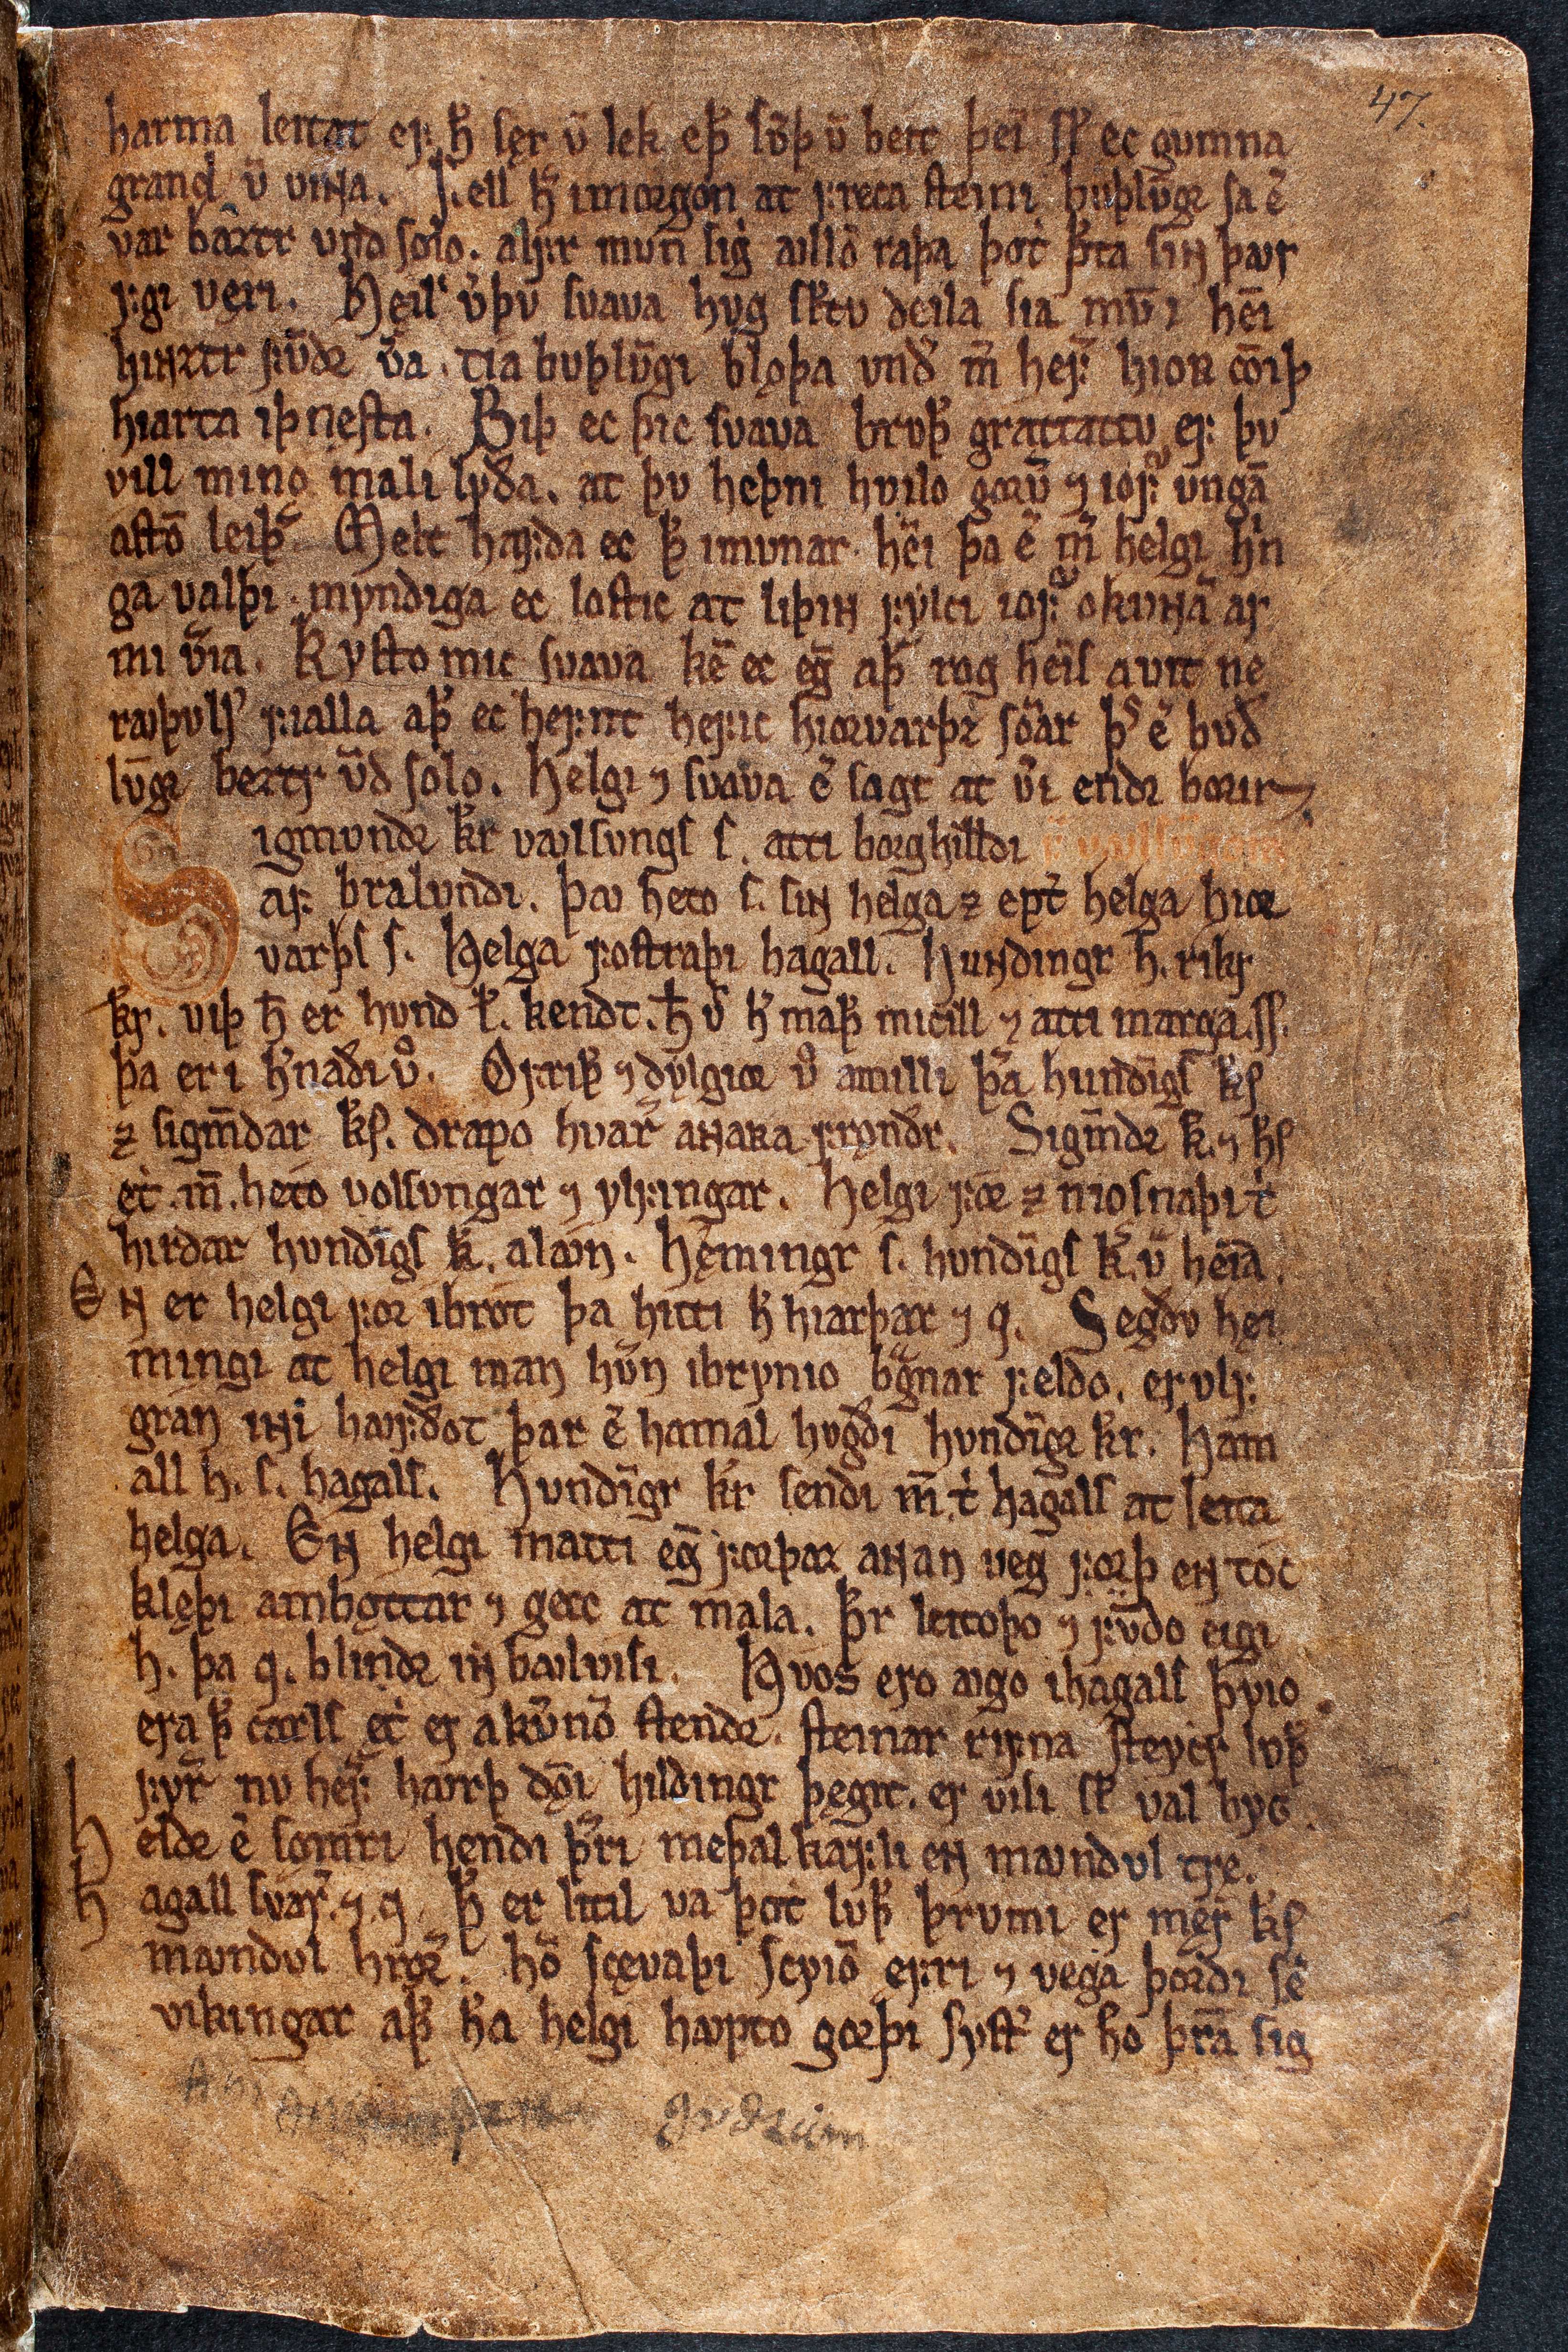 47.
harma leitat ef h̅ sęr ū lek eþ̅ sv̄þ ū beit þei̅ sl̅ ec gumna
grand ū viɴa. Fell h̅ imorgon at freca steini buþlvngr sa e̅
var baztr und solo. alfr mun sig̅ ollo̅ raþa þot þ̅ta siɴ þavr
fgi veri. Heil v̅þv svava hvg sl̅tv deila sia mv̅ i hei̅
hiɴztr fv̅dr v̅a. tia buþlv̅gi bloþa und m̅ hef̅ hioʀ co̅iþ
hiarta iþ nesta. Biþ ec þic svava brvþ̅ grattattv ef þv
vill mino mali lyða. at þv heþni hvilo gorv̅ ⁊ iofr̅ ungā
asto̅ leiþ̅. Melt hafda ec þ̅ imunar hei̅ þa e̅ m̅ helgi h̅n
ga valþi. myndiga ec lostic at liþiɴ fylci iofr̅ okuɴā ar
mi v̅ia. Kysto mic svava ke̅ ec eg̅ aþ̅ rog hei̅s avit ne
raþvls̅ fialla aþ̅ ec hefnt hefic hiorvarþz so̅ar þ̅s e̅ buð
lv̅gr beztr v̅d solo. Helgi ⁊ svava e̅ sagt at v̅i endr borir
Sigmundr k̅r vavlsvngs s. atti borghilldi f̅ vavlsv̅gom
af bralundi. þav heto s. siɴ helga ⁊ ept̅ helga hior
varþs s. Helga fostraþi hagall. Hundingr h. rikr
k̅r. viþ h̅ er hund l̅. kendt. h̅ v̅ h̅ maþ̅ micill ⁊ atti marga. ss.
þa er i h̅naði v̅o. Ofriþ̅ ⁊ dylgior v̅o amilli þ̅a hundi̅gs k̅s
⁊ sigm̅dar k̅s. drapo hvar̅ aɴara frǫndr. Sigm̅dr k̅. ⁊ h̅s
et̅. m̅. heto volsungar ⁊ ylfingar. Helgi for ⁊ niosnaþi t̅
hirdar hundi̅gs k̅. alau̅n. Hęmingr s. hundi̅gs k̅s v̅ hei̅a.
Eɴ er helgi for ibrot þa hitti h̅ hiarþar ⁊ q. Segðv hęi
mingi at helgi man hv̅n ibrynio b̅gnar feldo. er ulf
gran iɴi hafðot þar e̅ hamal hugði hundi̅gr k̅r. Ham
all h. s. hagals. Hundi̅gr k̅r sendi m̅ t̅ hagals at leita
helga. Eɴ helgi matti eg̅ forþaz aɴan veg forþ eɴ toc
klęþi ambottar ⁊ gecc at mala. þ̅r leitoþo ⁊ fv̅do eigi
h. þa q. blindr iɴ bavlvisi. Hvos ero avgo ihagals þyio
era þ̅ carls et̅ er a kv̅no̅ stendr. steinar rifna steycr luþ̅
fyr̅ nu hef̅ havrþ do̅i hildingr þegit. er visi sl̅ val byɢ.
heldr e̅ so̅mri hendi þ̅ri meþal kafli eɴ mavndul tre.
hagall svar̅. ⁊ q. þ̅ er litil va þot luþ̅ þrumi er męr k̅s
mavndul hrǫr̅. ho̅ scęvaþi scyio̅ efri ⁊ vega þorði se̅
vikingar aþ̅ h̅a helgi havpto gorþi syst̅ er ho þ̅ra sig
Gudrun